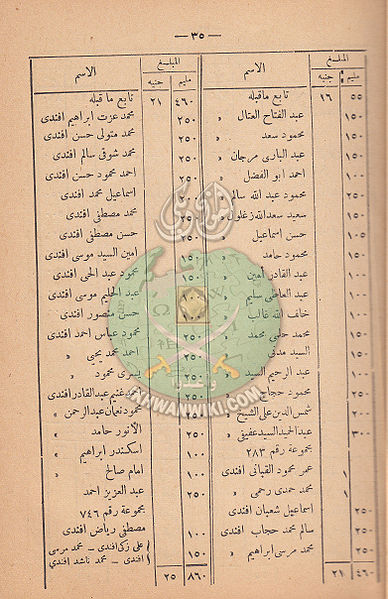 — ٣٥ —
المبلغ الاسم
مليم جنيه
٥٥ ١٦ تابع ماقبله
١٥٠ عبد الفتاح العتال »
١٥٠ محمود سعد »
١٥٠ عبد البارى مرجان »
١٠٠ احمد ابو الفضل »
٢٥٠ محمود عبد الله سالم »
١٥٠ سعيد سعد الله زغلول »
١٥٠ حسن اسماعيل »
١٥٠ محمود حامد »
١٠٠ عبد القادر أمين »
١٠٠ عبد العاطى سليم »
١٠٠ خلف الله غالب »
محمد حلمى محمد »
السيد مدنى
١٠٠ عبد الرحيم السيد
٢٥٠ محمود حجاج
٢٠٠ شمس الدين على الشيخ »
٣٠٠ عبد الحميد السيد عفيفى »
مجموعة رقم ٢٨٣
١ عمر محمود القبانى أفندى
١ محمد حمدى رحمى »
٢٥٠ اسماعيل شعبان افندى
٢٥٠ سالم محمد حجاب افندى
٢٥٠ محمد مرسى ابراهيم »
٤٦٠ ٢١
المبلغ الاسم
مليم جنيه
٤٦٠ ٢١ تابع ماقبله
٢٥٠ محمد عزت ابراهيم افندى
محمد متولى حسن افندى
٢٥٠ محمد شوقى سالم افندى
احمد محمود حسن افندى
٢٥٠ اسماعيل محمد افندى
محمد مصطفى افندى
٢٥٠ حسن مصطفى افندى
١٥٠ امين السيد موسى افندى
محمود عبد الحى افندى
١٠٠ عبد الحليم موسى افندى
١٠٠ حسن منصور افندى
محمود عباس احمد افندى
احمد محمد يحيى »
يسرى محمود »
غنيم عبد القادر افندى
٢٥٠ محمود نعمان عبد الرحمن »
٢٥٠ الأنور حامد »
١٠٠ اسكندر ابراهيم »
١٠٠ امام صالح »
٢٥٠ عبد العزيز احمد
مجموعة رقم ٧٤٦
١٠٠ مصطفى رياض افندى
١٥٠ على زكى افندى – محمد مرسى
افندى – محمد ناشد افندى
٨٦٠ ٢٥
IKHWANWIKI.COM